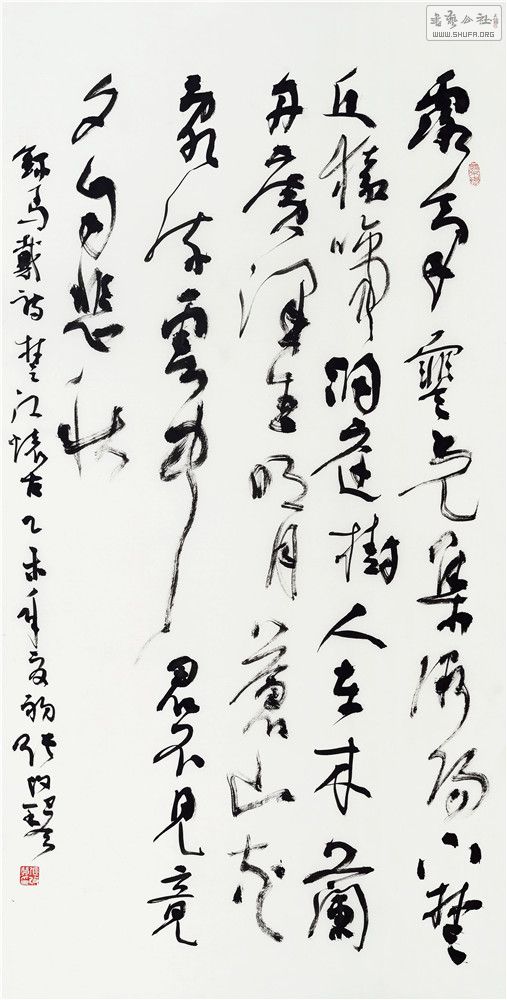 露氣寒光集微陽下楚
丘猿啼洞庭樹人在木蘭
舟廣澤生明月蒼山夾
亂流雲中君不見竟
夕自悲秋
錄馬戴詩楚江懷古乙未年夏初張改琴
書藝公社
WWW.SHUFA.ORG